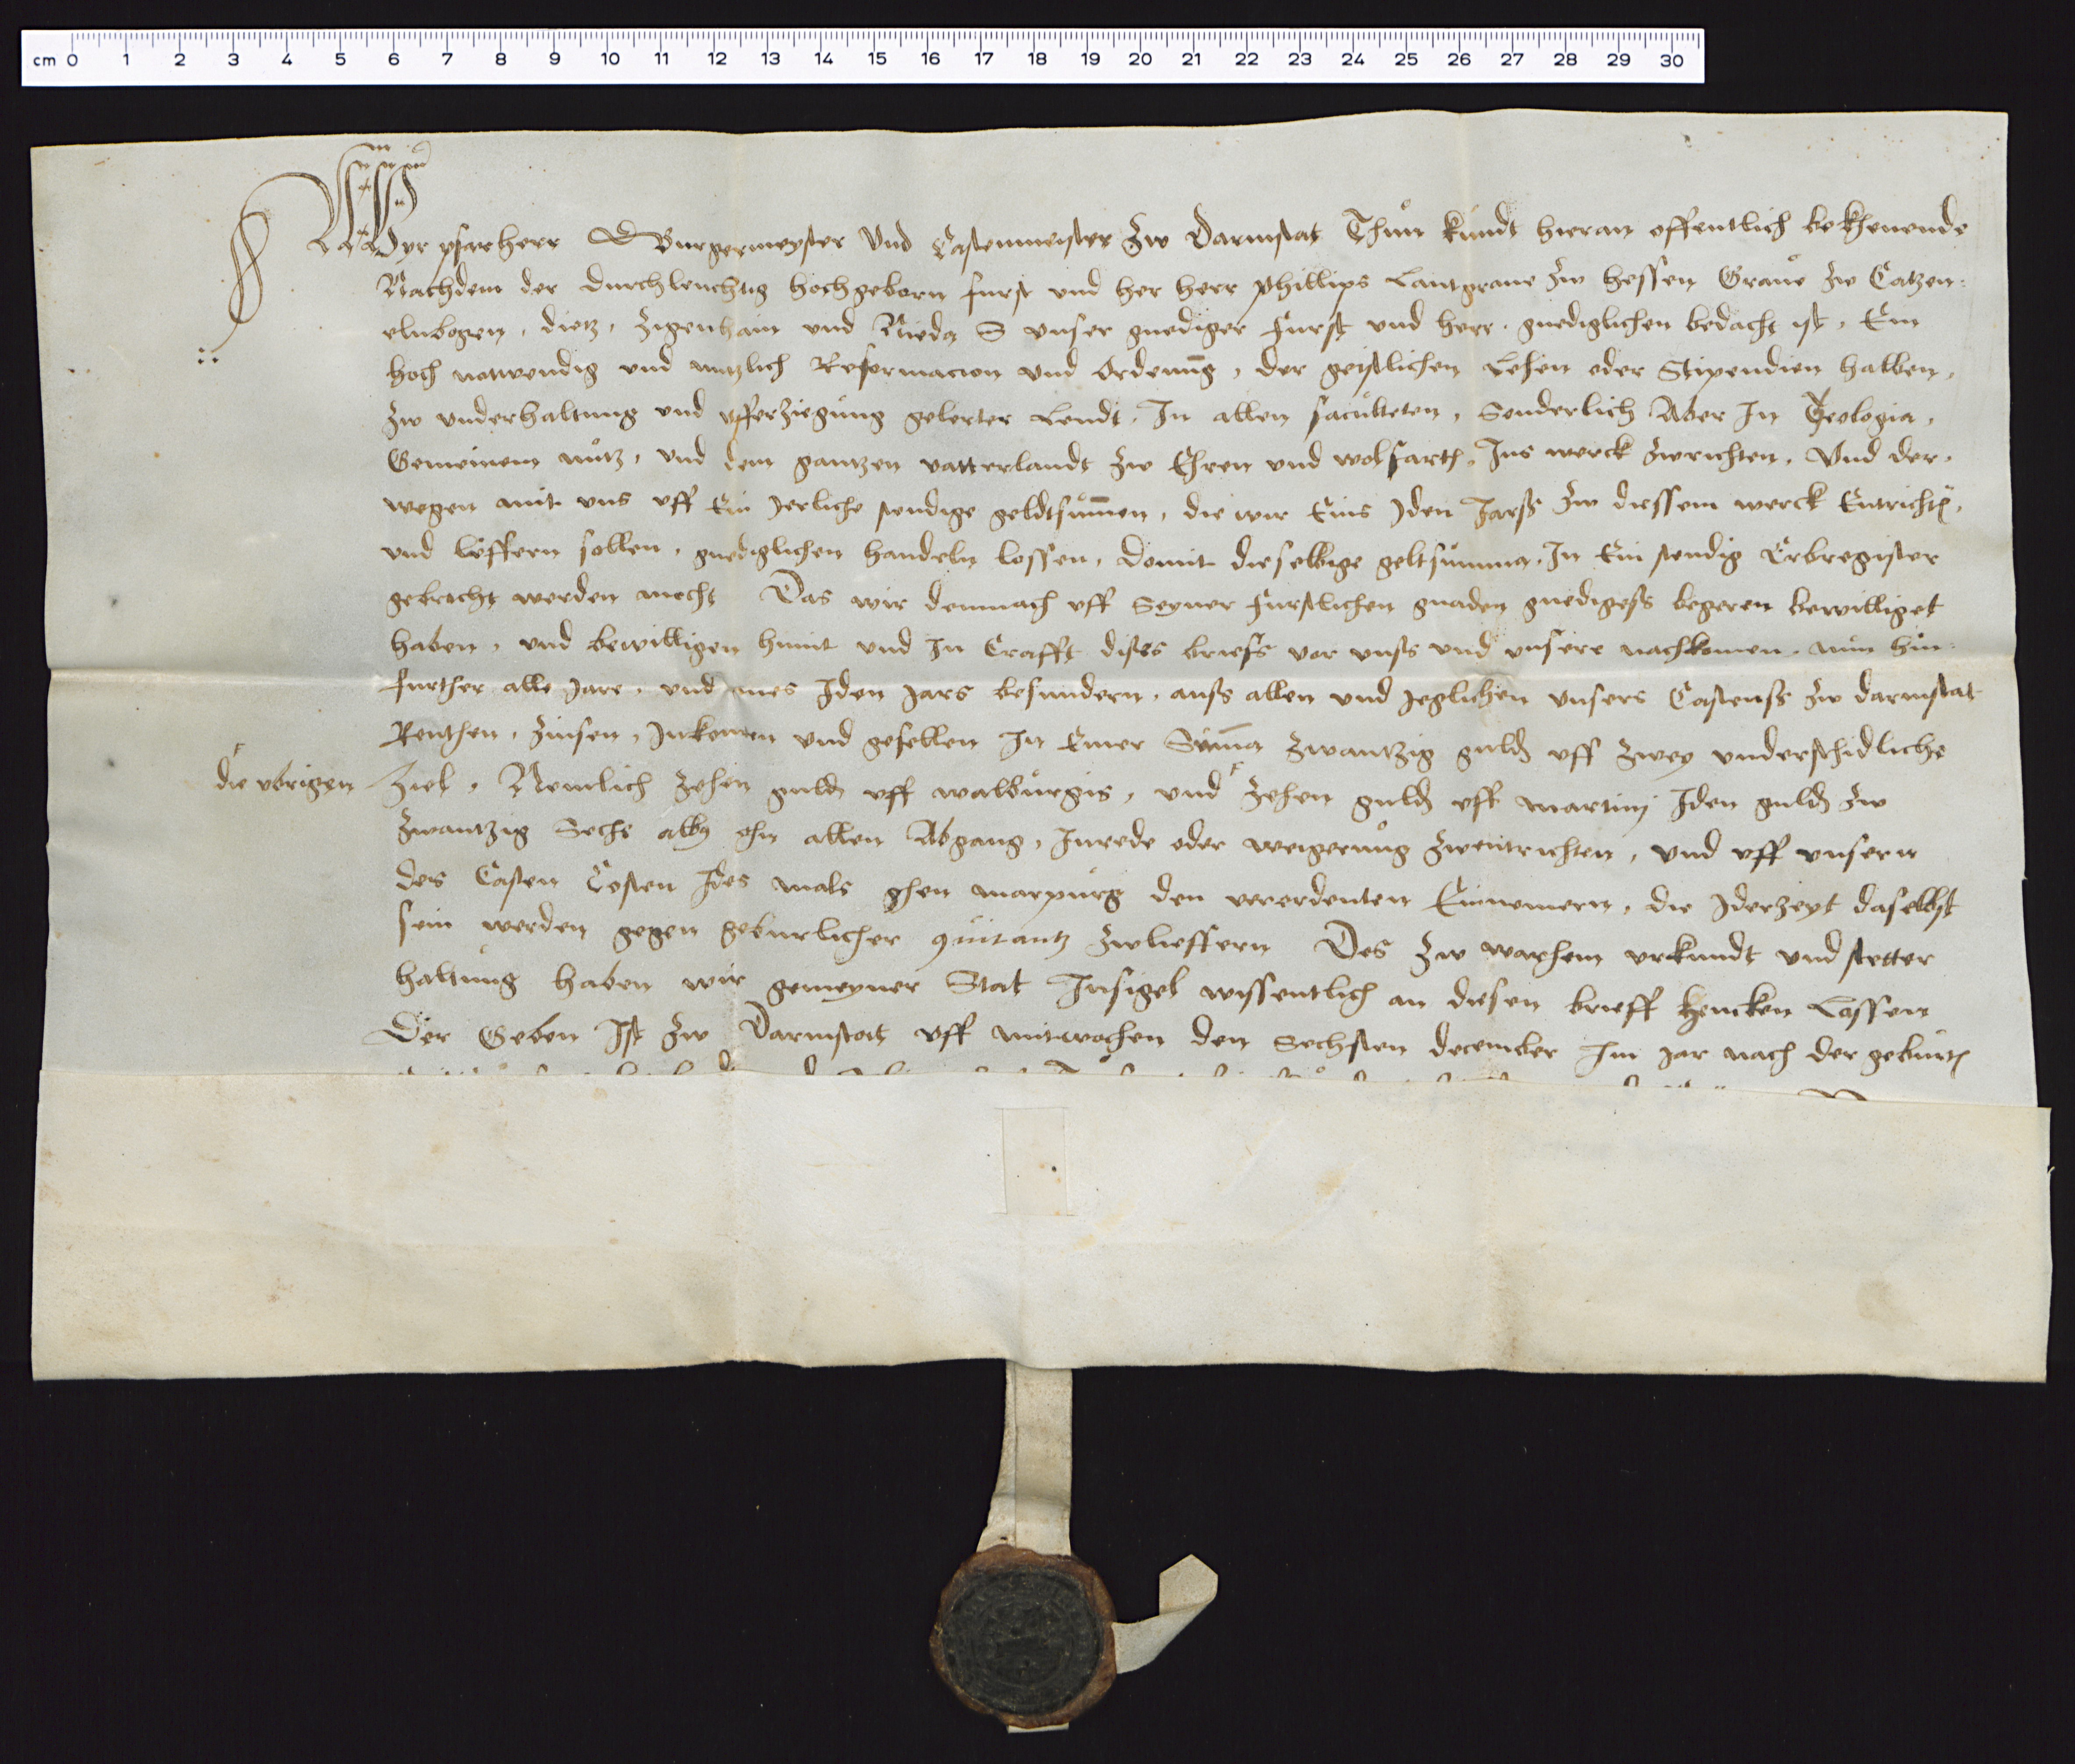 cm 0 1 2 3 4 5 6 7 8 9 10 11 12 13 14 15 16 17 18 19 20 21 22 23 24 25 26 27 28 29 30
Wyr pfarherr Burgermeyster Und Castenmeister zw Darmstat Thun kundt hieran offentlich bekhenende
Nachdem der durchleuchtig hochgeborn furst und her herr Phillips Lantgrave zw hessen Grave zw Catzen:
elnbogen, dietz, Zigenhain und Nieda unser gnediger Furst und herr, gnediglichen bedacht ist, Ein
hoch notwendig und nutzlich Reformacion und Ordenung, der geistlichen Lehen oder Stipendien halben,
zw underhaltung und ufferziegung gelerter Leudt, In allen faculteten, Sonderlich Aber In Teologia,
Gemeinem nutz, und dem gantzen vatterlandt zw Ehren und wolfarth, Ins werck zwrichten, Und der,
wegen mit uns uff Ein Jerliche stendige geldtsummen, die wir Eins Iden Jarß zw diessem werck Entrichten,
und lieffern sollen, gnediglichen handeln lossen, domit dieselbige geltsumma, In Ein stendig Erbregister
gebracht werden mecht Das wir demnach uff Seyner furstlichen gnaden gnedigeß begeren bewilliget
haben, und bewilligen hirmit und In Crafft dises briefs vor unß und unsere nachkomen, nun hin:
further alle Jare, und eines Iden Jars besundern, auß allen und Jeglichen unsers Castenß zw darmstat
Renthen, Zinsen, Inkomen und gefellen In Einer Summa zwantzig guld uff zwey underschidliche
die ubrigen
Ziel, Nemlich zehen guld uff walburgis, und zehen guld uff martinj Iden guld zw
zwantzig Sechs alb ohn allen Abgang, Inrede oder weigerung zwentrichten, und uff unsern
des Casten Costen Ides mals ghen marpurg den verordenten Einnemern, die Iderzeyt daselbst
sein werden gegen geburlicher quitantz zwlieffern Des zw warhem urkundt und stetter
haltung haben wir gemeyner Stat Insigel wissentlich an diesen brieff hencken Lassen
Der Geben Ist zw Darmstat uff mitwochen den Sechsten december Im Jar nach der geburth